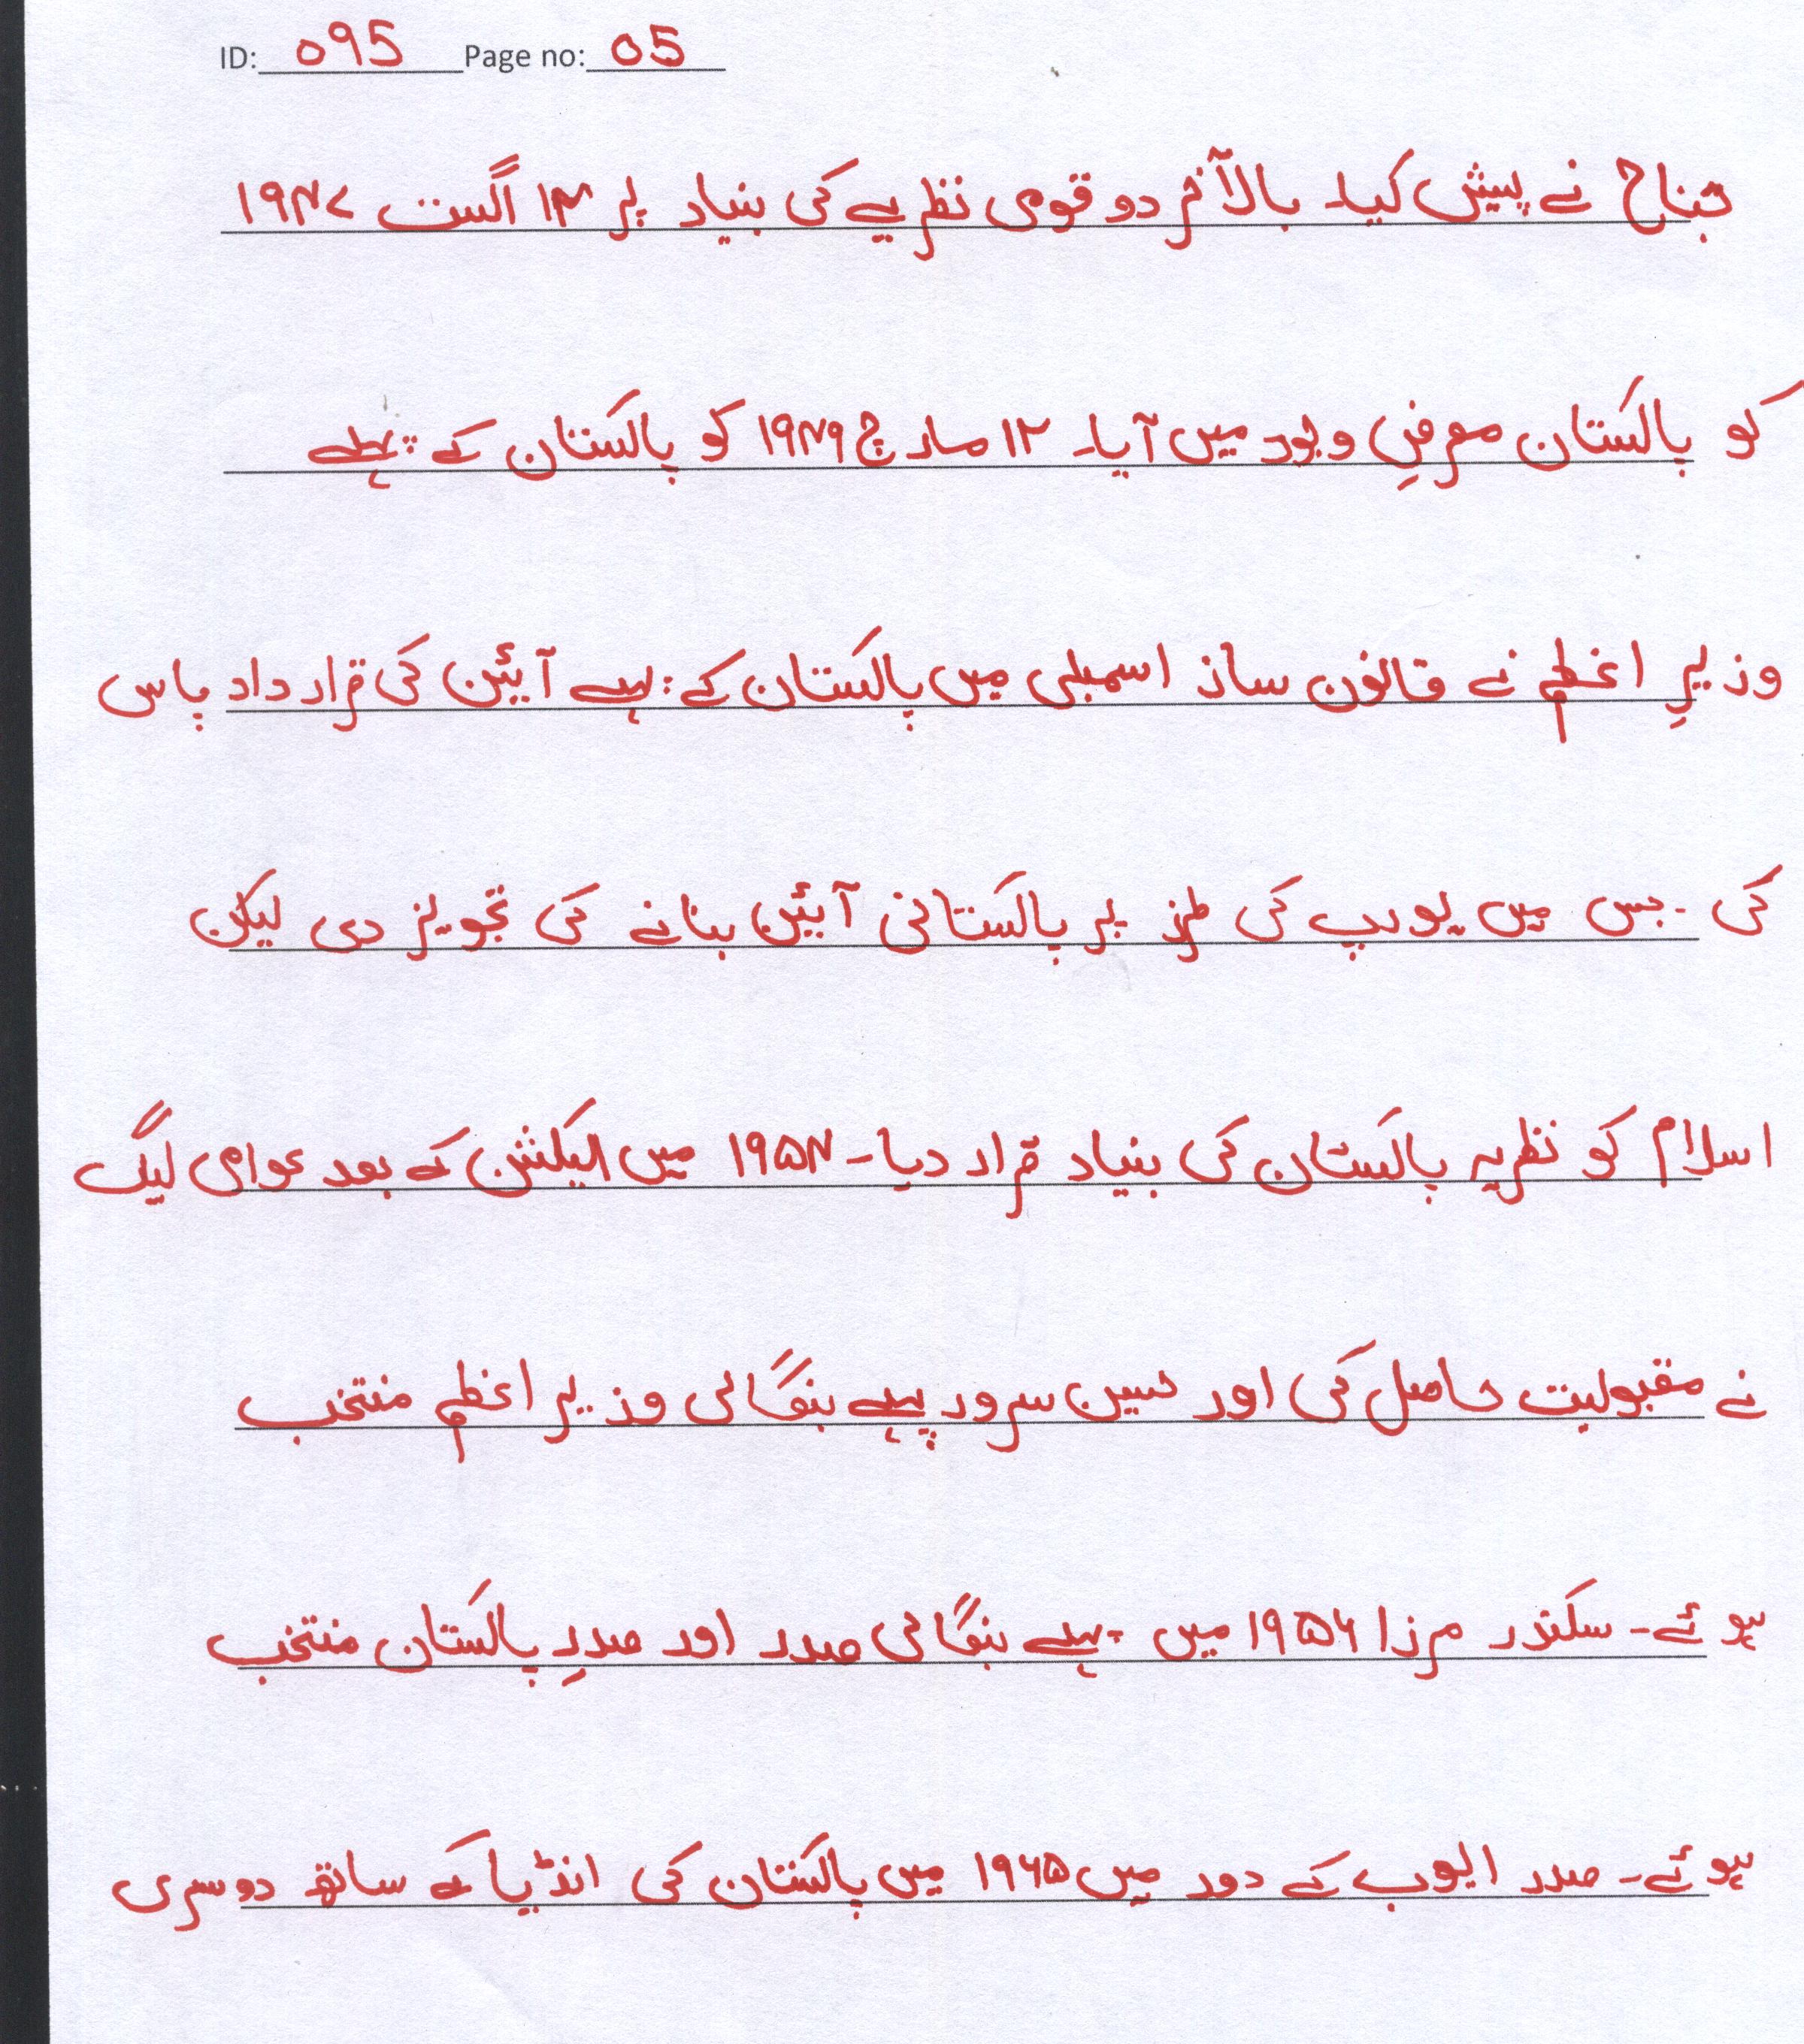 ID: 095 Page no: 05
جناح نے پیش کیا۔ بالآخر دو قومی نظریے کی بنیاد پر ۱۴ اگست ۱۹۴۷
کو پاکستان معرضِ وجود میں آیا۔ ۱۲ مارچ ۱۹۴۹ کو پاکستان کے پہلے
وزیرِ اعظم نے قانون ساز اسمبلی میں پاکستان کے پہلے آئین کی قرارداد پاس
کی۔ جس میں یورپ کی طرز پر پاکستانی آئین بنانے کی تجویز دی لیکن
اسلام کو نظریہ پاکستان کی بنیاد قرار دیا۔ ۱۹۵۴ میں الیکشن کے بعد عوامی لیگ
نے مقبولیت حاصل کی اور حسین سرور پہلے بنگالی وزیر اعظم منتخب
ہوئے۔ سکندر مرزا ۱۹۵۶ میں پہلے بنگالی صدر اور صدرِ پاکستان منتخب
ہوئے۔ صدر ایوب کے دور میں ۱۹۶۵ میں پاکستان کی انڈیا کے ساتھ دوسری